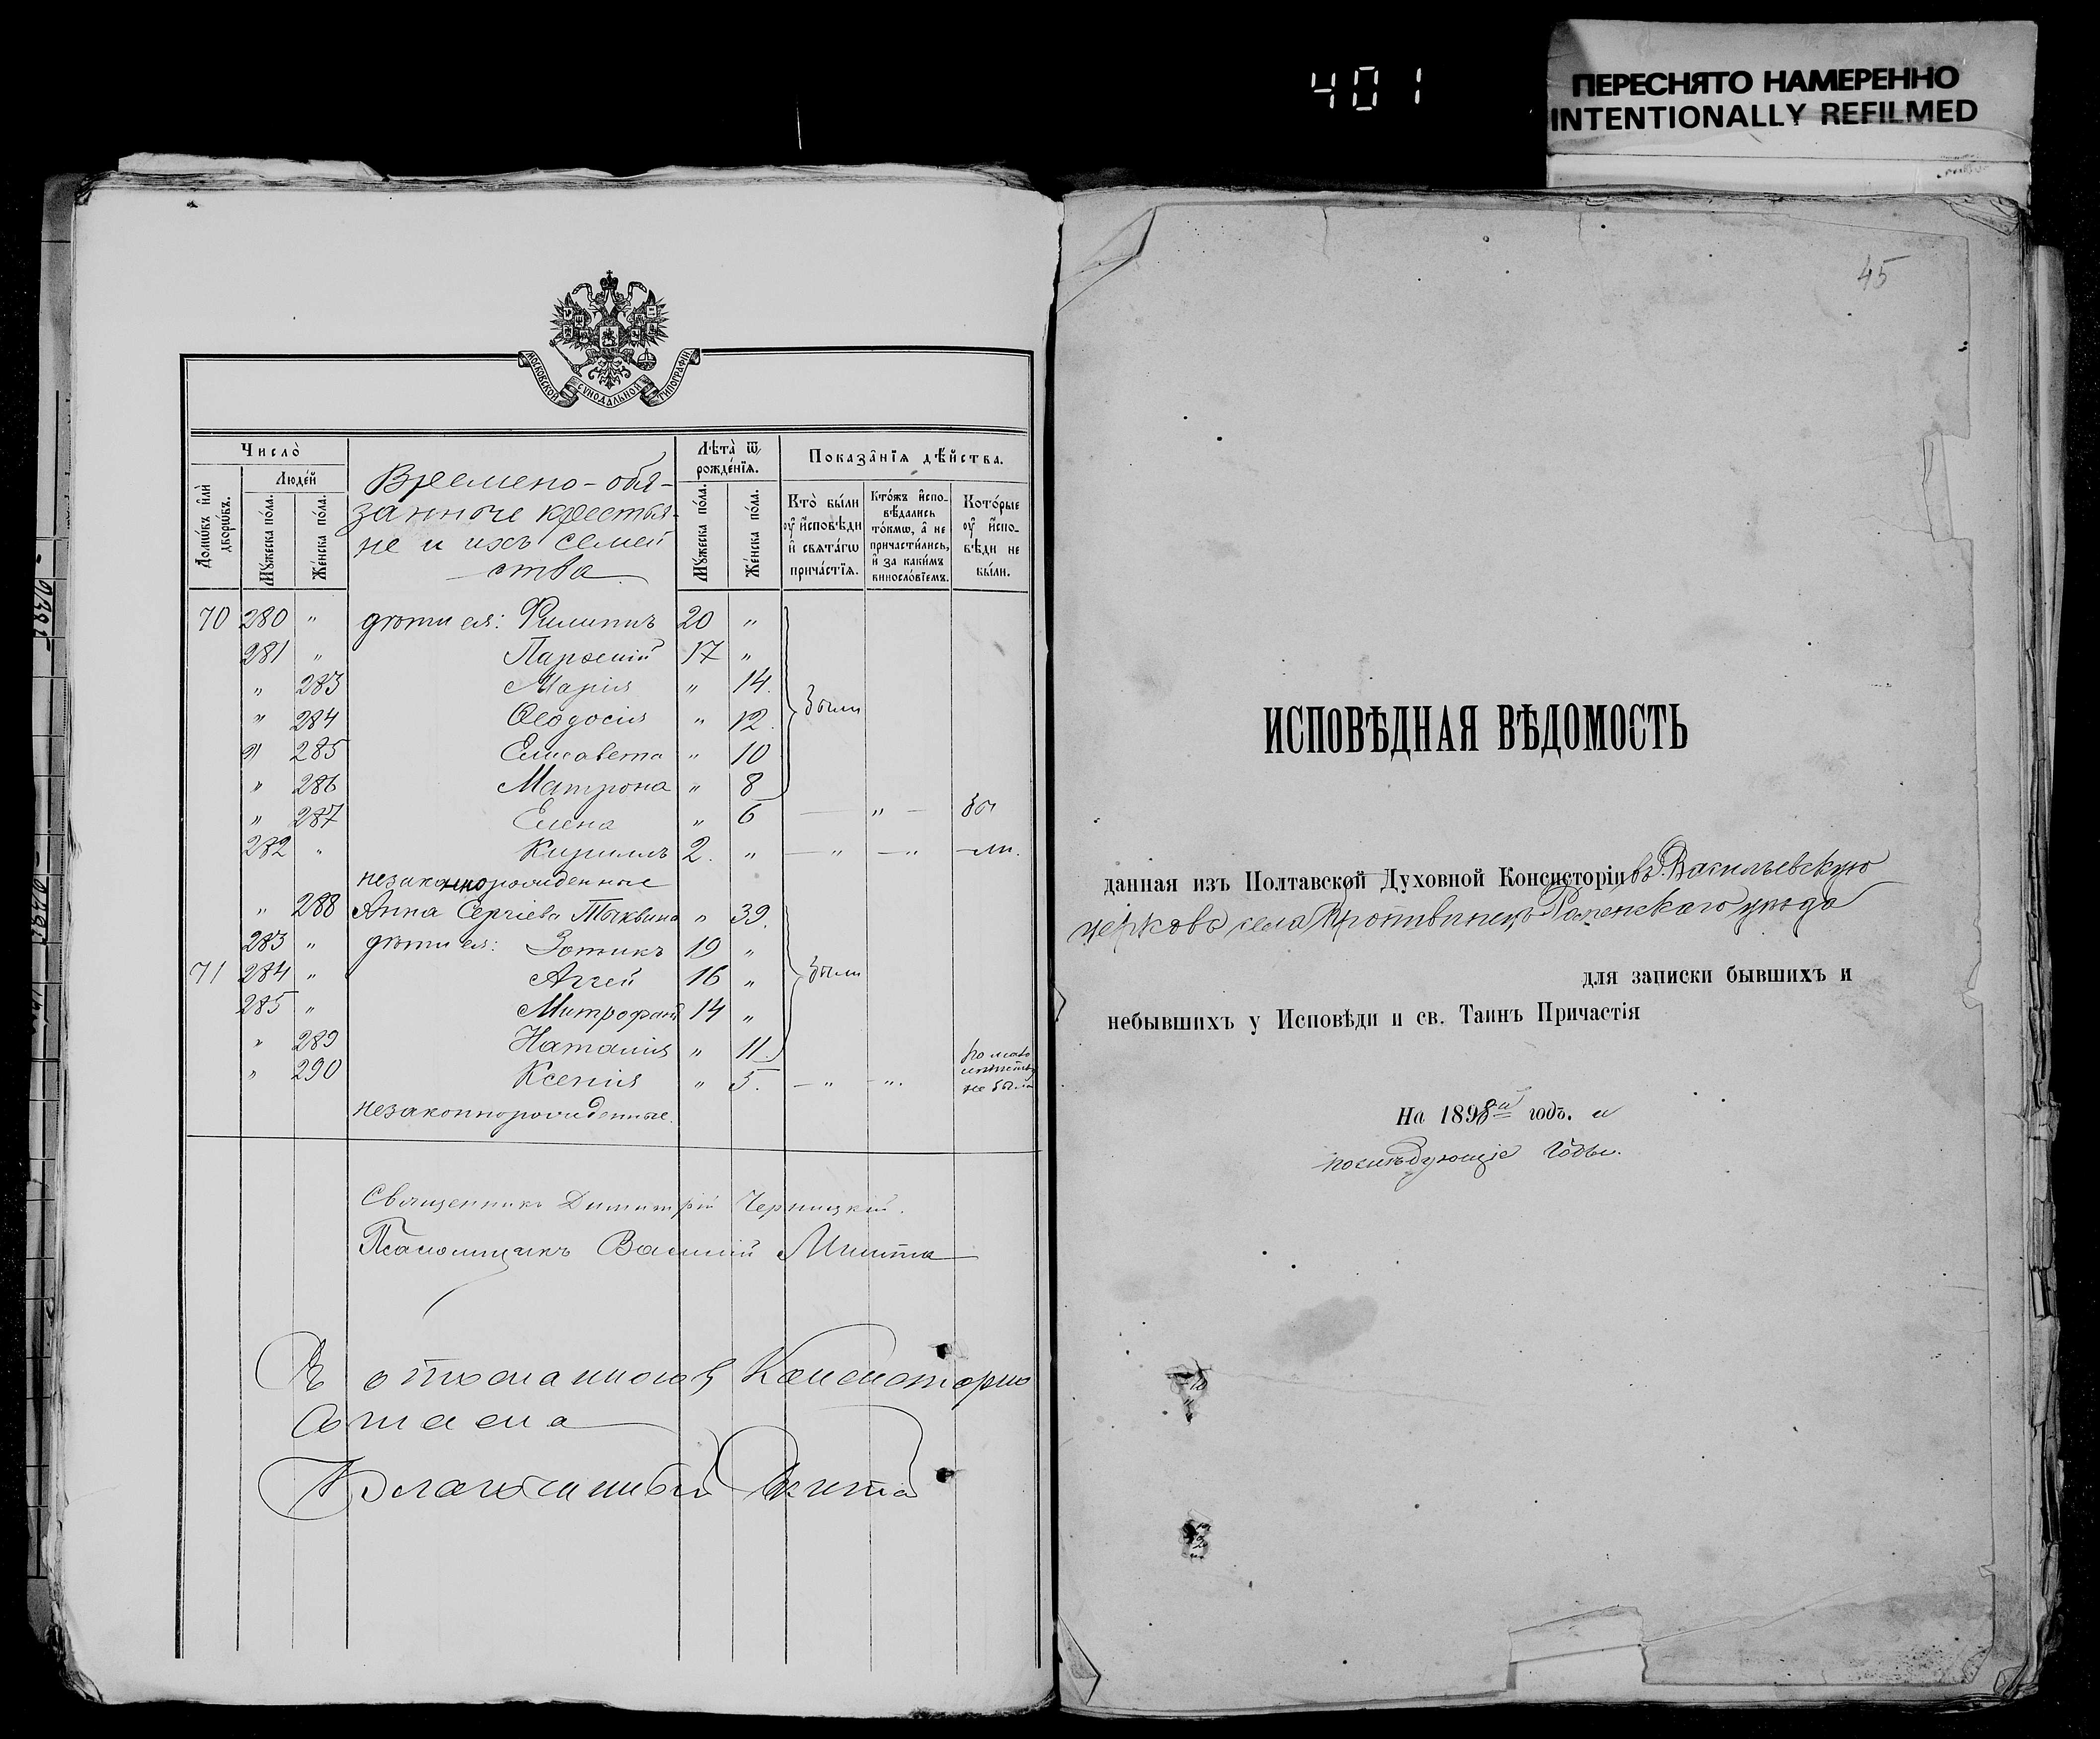 401
ПЕРЕСНЯТО НАМЕРЕННО
INTENTIONALLY REFILMED
МОСКОВСКОЙ СѴНОДАЛЬНОЙ ТИПОГРАФІИ
Число̀
Людей
Домѡвъ и҆лѝ дворѡвъ.
Мꙋ́жеска по́ла.
Же́нска по́ла.
Времено-обя-
занные крестья-
не и ихъ семей
ства
Лѣта̀ ѿ рожде́нїѧ.
Мꙋ́жеска по́ла.
Же́нска по́ла.
Показа̂нїѧ дѣ́йства.
Кто̀ бы́ли оу҆ и҆сповѣди и҆ свѧта́гѡ прича́стїѧ.
Кто́жъ и҆спо-вѣдались то́кмѡ, а҆ не причасти́лись, и҆ за каки́мъ виносло́вїемъ.
Кото́рые оу҆ и҆спо-вѣди не бы́ли.
70 280 " дѣти ея: Филиппъ 20 "
281 " Парѳеній 17 "
" 283 Марія " 14.
" 284 Ѳеодосія " 12. были
" 285 Елисавета " 10
" 286 Матрона " 8
" 287 Елена " 6 — " — бы
282 " Кириллъ 2. " — " — " —ли.
незаконнорожденные
" 288 Анна Сергіева Тыквина " 39.
283 " дѣти ея: Зотикъ 19 "
71 284 " Аггей 16 " были
285 " Митрофанъ 14 "
" 289 Наталія " 11.
" 290 Ксенія " 5. — " — ". по мало лѣтству не была
незаконнорожденные.
Священникъ Димитрій Черницкій.
Псаломщикъ Василій
Консисторію
Благочинный
45
ИСПОВѢДНАЯ ВѢДОМОСТЬ
данная изъ Полтавской Духовной Консисторіи въ Васильевскую
церковь села Протвинецъ Роменскаго уѣзда
для записки бывшихъ и
небывшихъ у Исповѣди и св. Таинъ Причастія
На 1898й годъ. и
послѣдующіе годы.